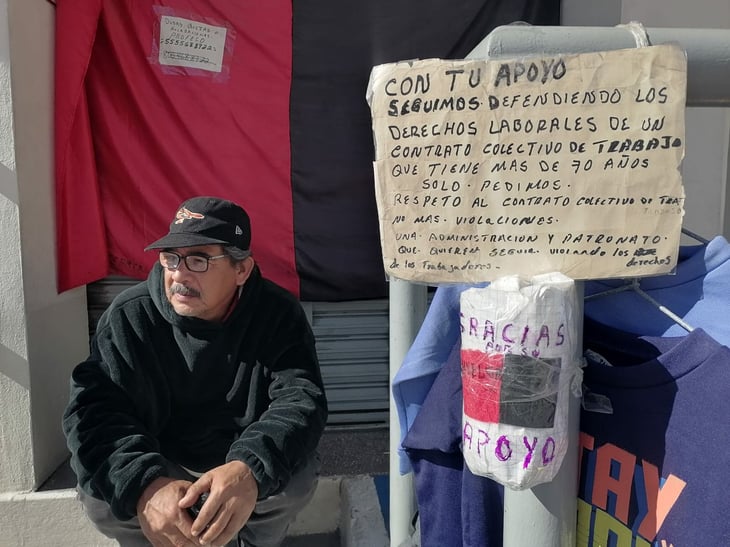 CON TU APOYO
SEGUIMOS DEFENDIENDO LOS
DERECHOS LABORALES DE UN
CONTRATO COLECTIVO DE TRABAJO
QUE TIENE MAS DE 70 AÑOS
SOLO. PEDIMOS.
RESPETO AL CONTRATO COLECTIVO DE TRA
NO MAS. VIOLACIONES.
UNA. ADMINISTRACION Y PATRONATO.
QUE. QUIEREN SEGUIR. VIOLANDO los
derechos
de los Trabajadores.
GRACIAS
POR SU
APOYO